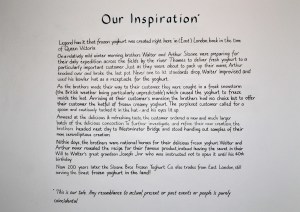 Our Inspiration*
Legend has it that frozen yoghurt was created right here in (East) London back in the time
of Queen Victoria
One relatively mild winter morning brothers Walter and Arthur Sloane were preparing for
their daily expedition across the fields by the river Thames to deliver fresh yoghurt to a
particularly important customer. Just as they were about to pack up their wares, Arthur
tripped over and broke the last pot. Never one to let standards drop, Walter improvised and
used his bowler hat as a receptacle for the yoghurt.
As the brothers made their way to their customer they were caught in a freak snowstorm
(the British weather being particularly unpredictable) which caused the yoghurt to freeze
inside the hat. Arriving at their customer's mansion the brothers had no choice but to offer
their customer the hatful of frozen creamy yoghurt. The surprised customer called for a
spoon and cautiously tucked it in the hat - and his eyes lit up.
Amazed at the delicious & refreshing taste, the customer ordered a new and much larger
batch of the delicious concoction. To further investigate, and refine their new creation, the
brothers headed next day to Westminster Bridge and stood handing out samples of their
new serendipitous creation.
Within days the brothers were national heroes for their delicious frozen yoghurt. Walter and
Arthur never revealed the recipe for their famous product, instead leaving the secret in their
Will to Walter's great grandson Joseph Jnr who was instructed not to open it until his 40th
birthday.
Now 200 years later the Sloane Bros Frozen Yoghurt Co also trades from East London still
serving the finest frozen yoghurt in the land!
* This is our tale. Any resemblance to actual present or past events or people is purely
coincidental